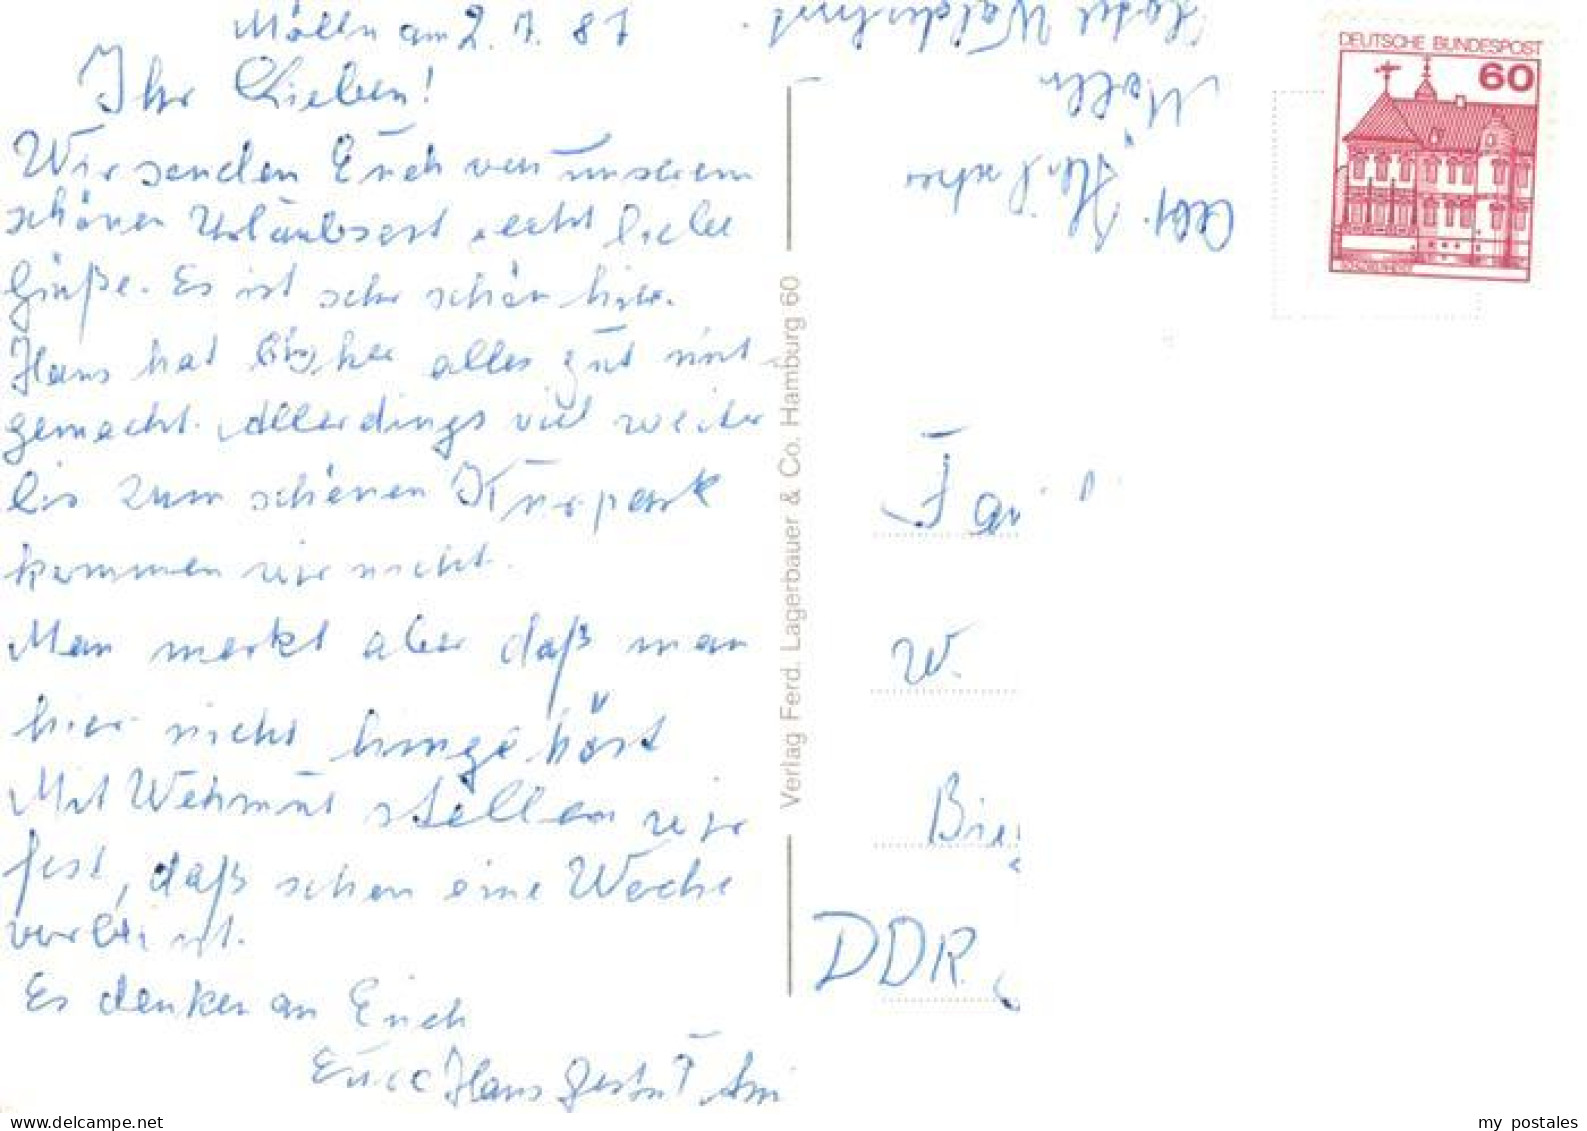 Mölln am 2.7.87
Ihr Lieben!
Wir senden Euch von unserem
schönen Urlaubsort recht liebe
Grüße. Es ist sehr schön hier.
Hans hat bisher alles gut mit
gemacht. Allerdings viel weiter
bis zum schönen Kurpark
kommen wir nicht.
Man merkt aber daß man
hier nicht hingehört
Mit Wehmut stellen wir
fest, daß schon eine Woche
vorbei ist.
Es denken an Euch
Eure Hans Gertrud
Verlag Ferd. Lagerbauer & Co. Hamburg 60
Hotel Waldschlößchen
Mölln
Abs.
DEUTSCHE BUNDESPOST
60
Fam
W.
Bie
DDR
www.delcampe.net
my postales